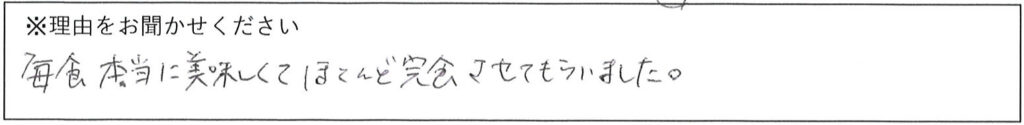 ※理由をお聞かせください
毎食本当に美味しくてほとんど完食させてもらいました。